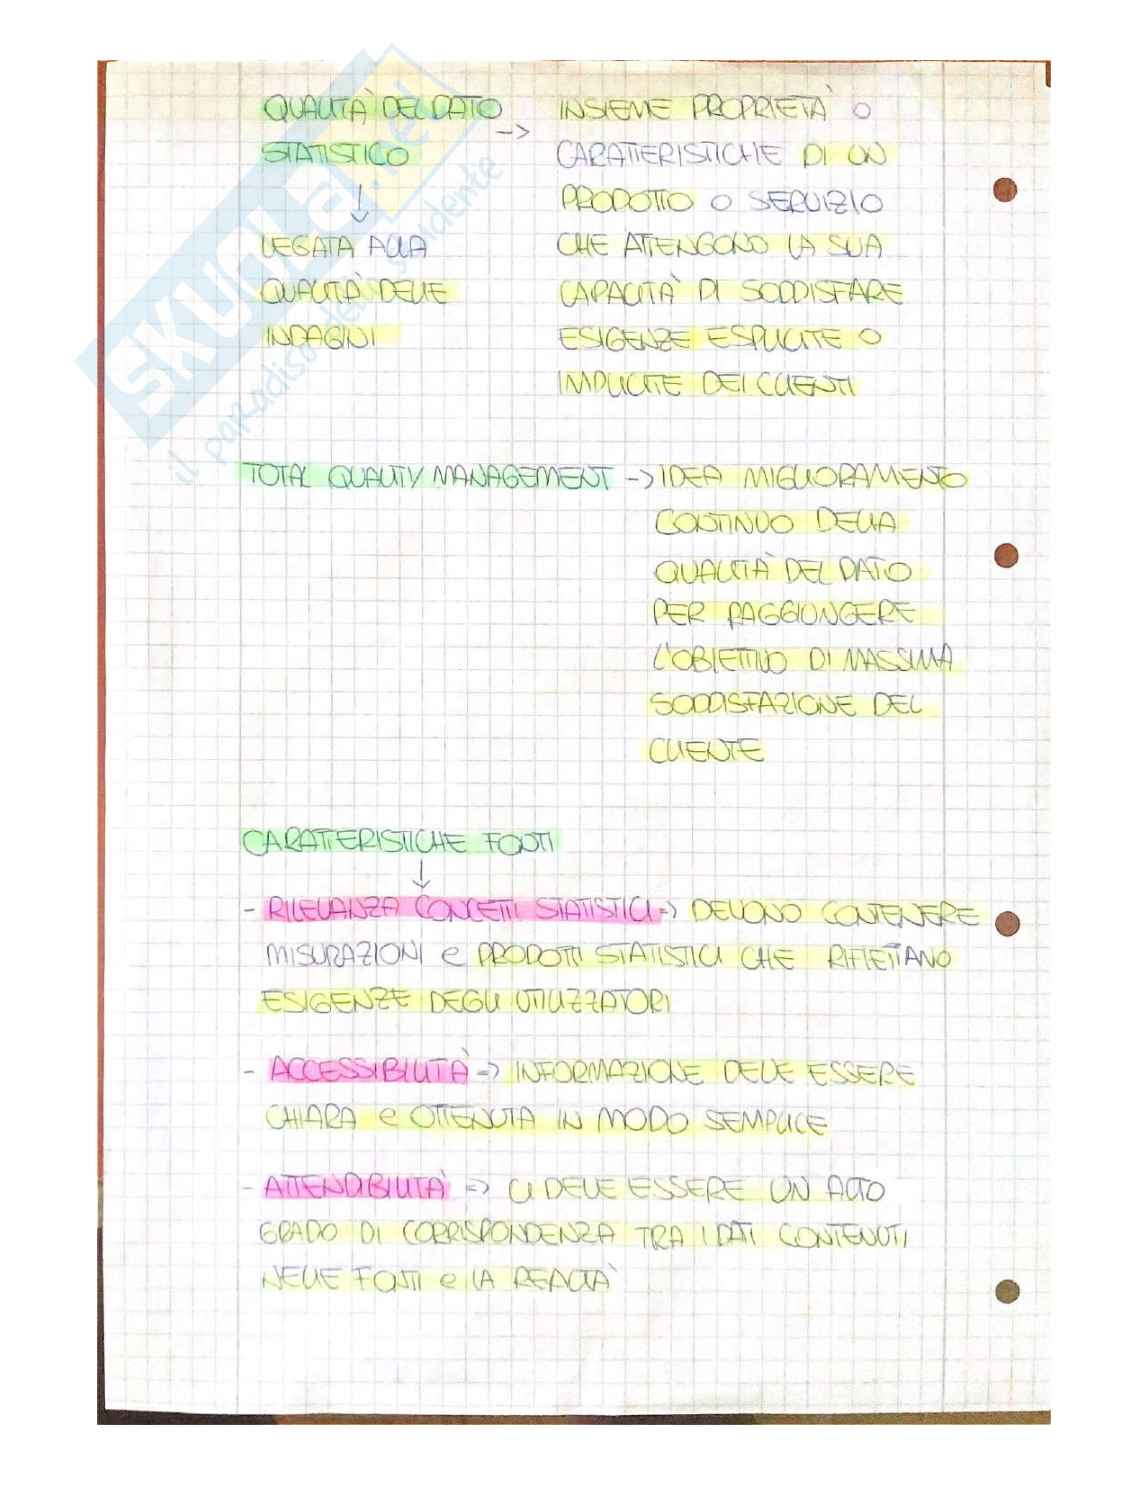 QUALITÀ DEL DATO -> INSIEME PROPRIETÀ O
STATISTICO CARATTERISTICHE DI UN
↓ PRODOTTO O SERVIZIO
LEGATA ALLA CHE ATTENGONO LA SUA
QUALITÀ DELLE CAPACITÀ DI SODDISFARE
INDAGINI ESIGENZE ESPLICITE O
IMPLICITE DEI CLIENTI
TOTAL QUALITY MANAGEMENT -> IDEA MIGLIORAMENTO
CONTINUO DELLA
QUALITÀ DEL DATO
PER RAGGIUNGERE
L'OBIETTIVO DI MASSIMA
SODDISFAZIONE DEL
CLIENTE
CARATTERISTICHE FONTI
↓
- RILEVANZA CONCETTI STATISTICI => DEVONO CONTENERE
MISURAZIONI e PRODOTTI STATISTICI CHE RIFLETTANO
ESIGENZE DEGLI UTILIZZATORI
- ACCESSIBILITÀ => INFORMAZIONE DEVE ESSERE
CHIARA e OTTENUTA IN MODO SEMPLICE
- ATTENDIBILITÀ => CI DEVE ESSERE UN ALTO
GRADO DI CORRISPONDENZA TRA I DATI CONTENUTI
NELLE FONTI e LA REALTÀ
SKUOLA.net
il paradiso dello studente